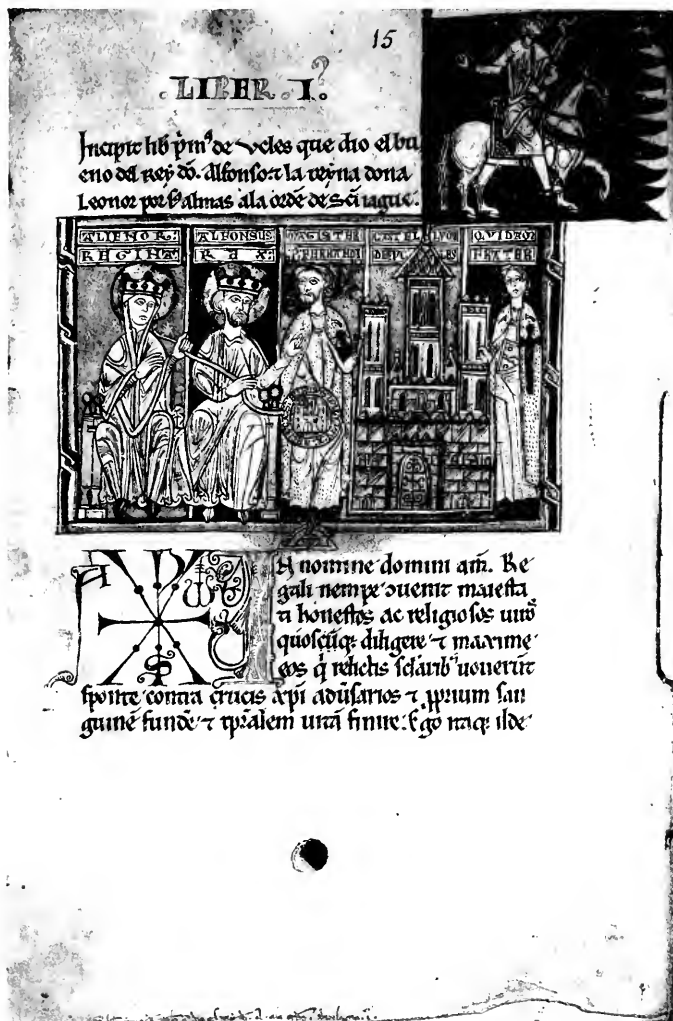 15
.LIBER.I.
Incipit lib p̄mꝰ de Ucles que dio el bu
eno del Rey dō. Alfonso ⁊ la reyna dona
Leonor por sꝰ almas a la ordē de Scī iague.
ALIENOR: ALFONSUS MAGISTER CASTELLUM QVIDAM
REGINA REX: P.FERRANDI DE UCLES FRATER
IN nomine domini am̄. Re
gali nempe ꝯuenit maiesta
ti honestos ac religiosos uiros
quoscūq; diligere ⁊ maxime
eos q̄ relictis sclarib uouerūt
sponte contra crucis xp̄i aduersarios ⁊ ꝓprium san
guinē fundē ⁊ tp̄ralem uitā finire. Ego itaq; ilde